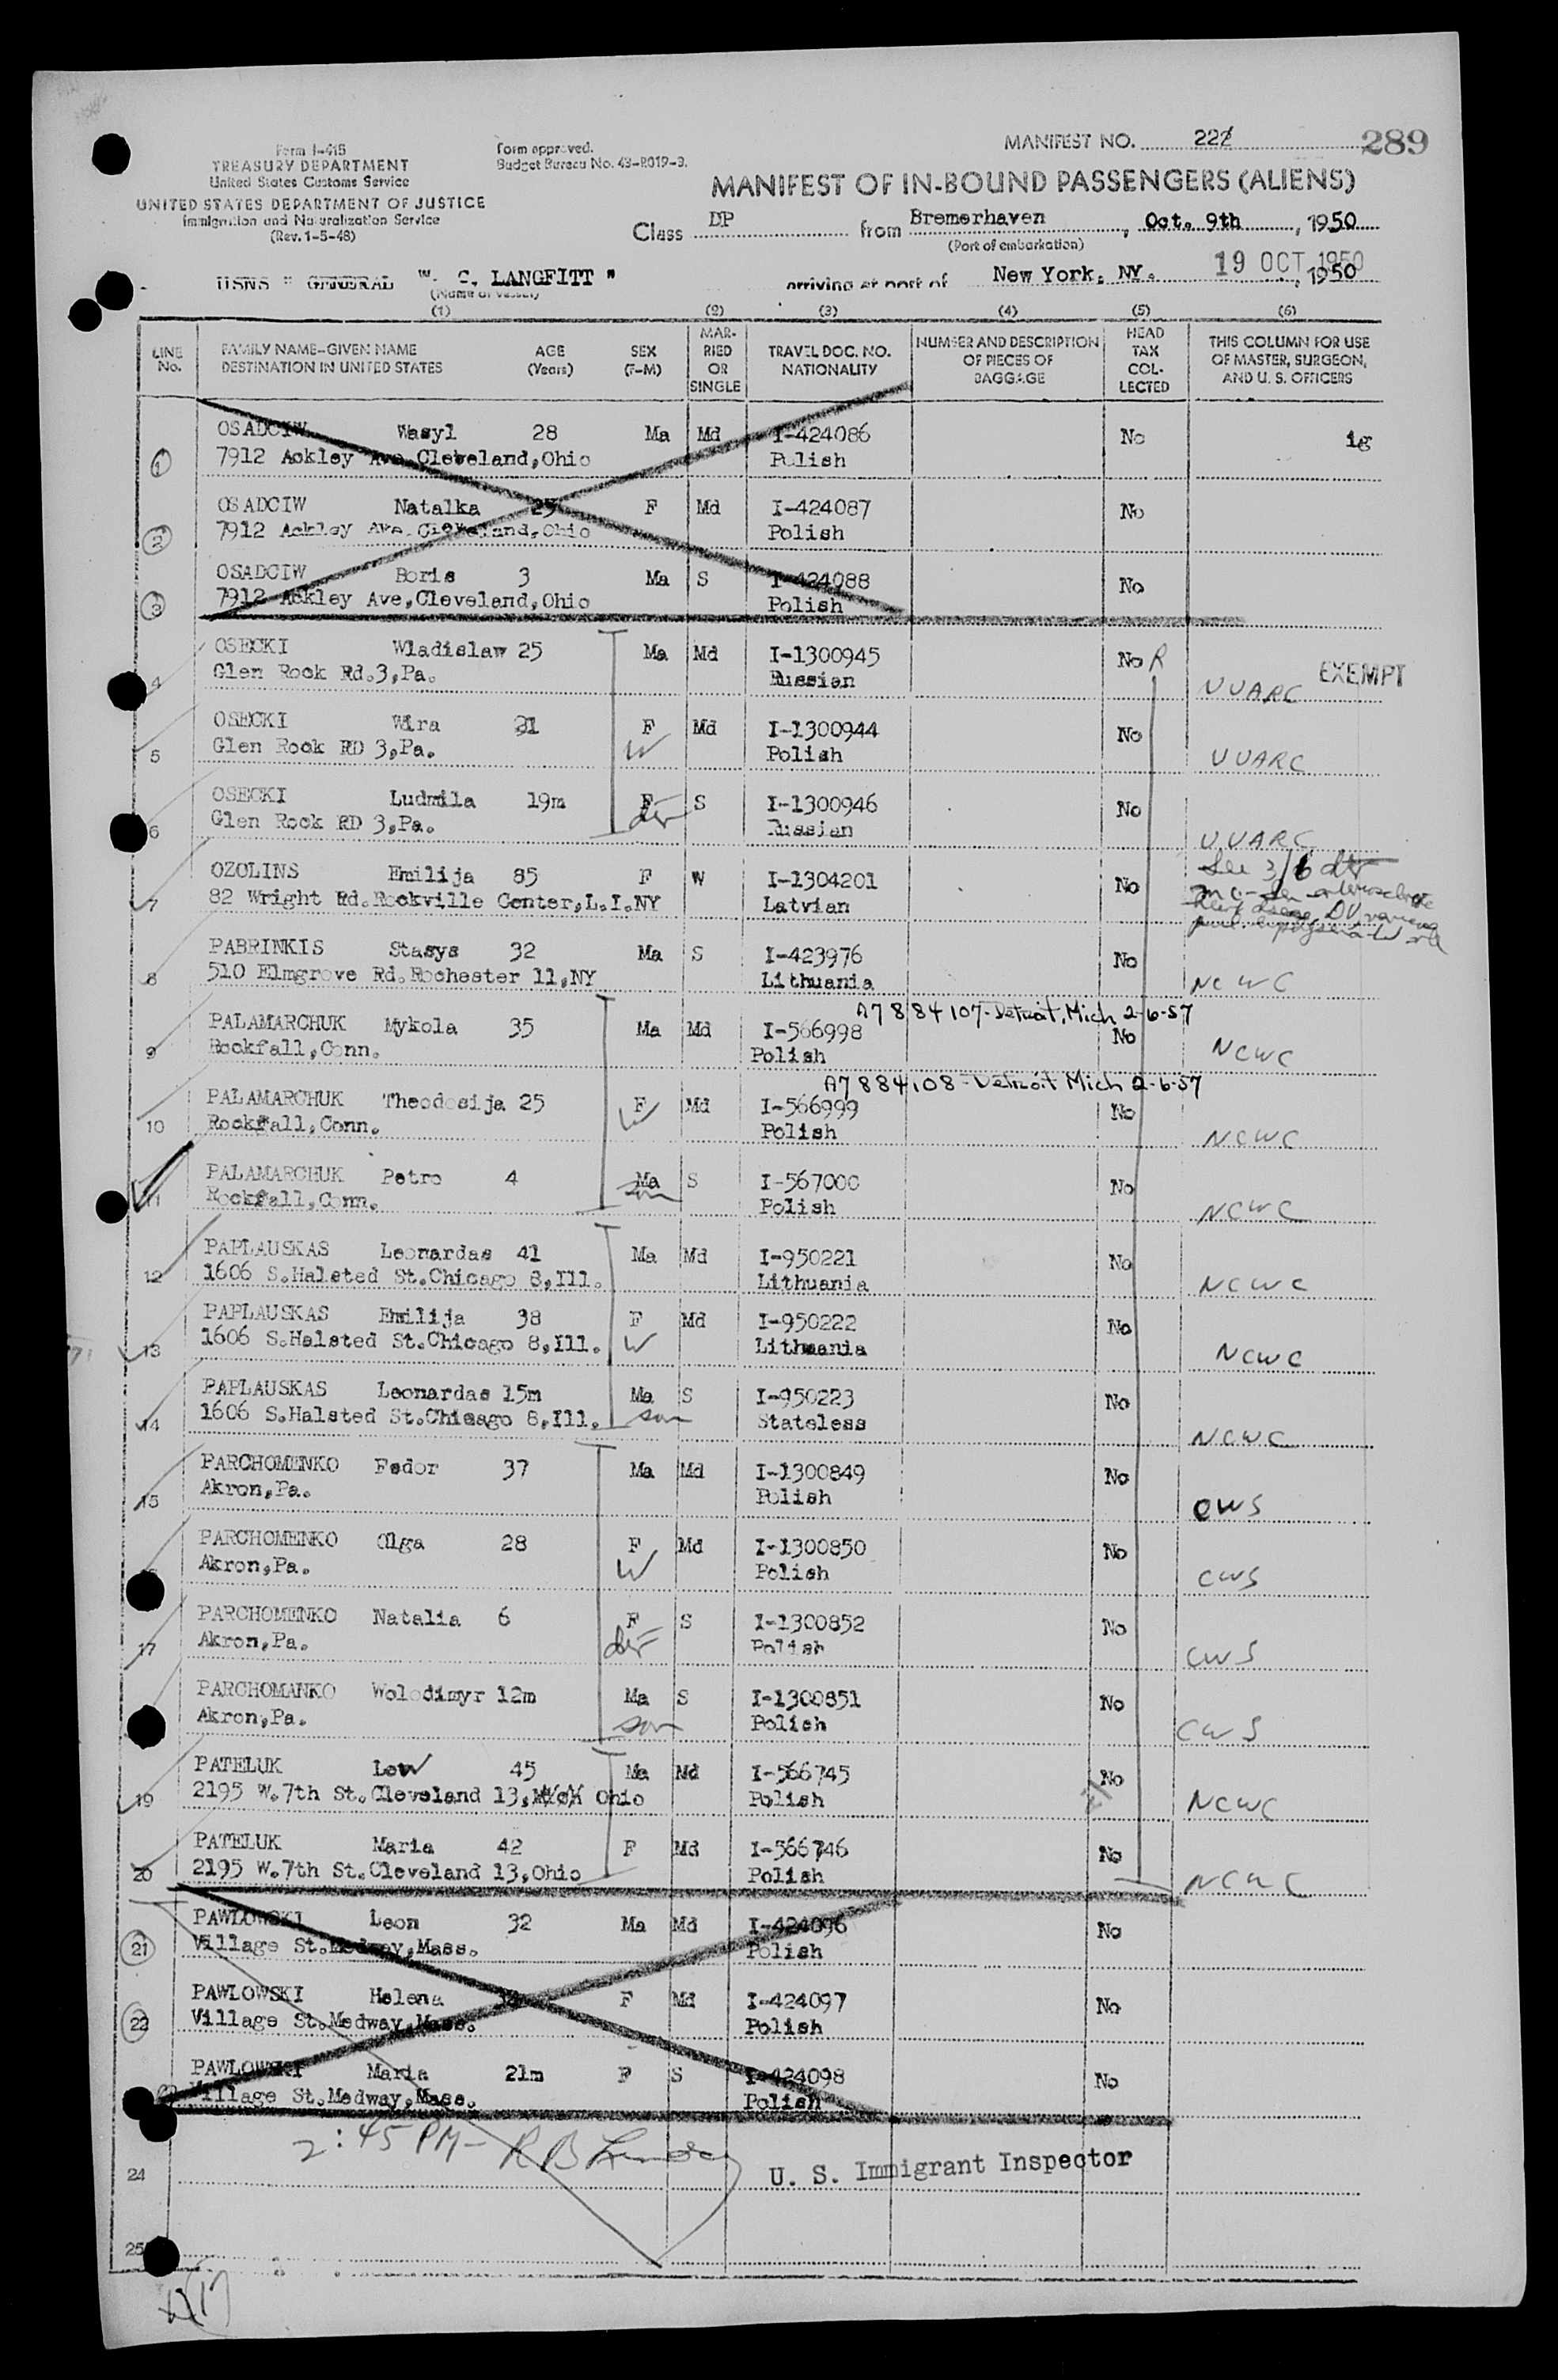 289
MANIFEST NO. 222
Form I-415
TREASURY DEPARTMENT
United States Customs Service
UNITED STATES DEPARTMENT OF JUSTICE
Immigration and Naturalization Service
(Rev. 1-5-48)
Form approved.
Budget Bureau No. 43-R019-3.
MANIFEST OF IN-BOUND PASSENGERS (ALIENS)
Class DP from Bremerhaven, Oct. 9th, 1950
(Port of embarkation)
USNS " GENERAL W. C. LANGFITT " arriving at port of New York, NY. 19 OCT 1950, 1950
(Name of vessel)
(1) (2) (3) (4) (5) (6)
LINE No. FAMILY NAME—GIVEN NAME DESTINATION IN UNITED STATES AGE (Years) SEX (F-M) MARRIED OR SINGLE TRAVEL DOC. NO. NATIONALITY NUMBER AND DESCRIPTION OF PIECES OF BAGGAGE HEAD TAX COLLECTED THIS COLUMN FOR USE OF MASTER, SURGEON, AND U. S. OFFICERS
1 OSADCIW Wasyl 28 Ma Md I-424086 No ig
7912 Ackley Ave.Cleveland,Ohio Polish
2 OSADCIW Natalka F Md I-424087 No
7912 Ackley Ave.Cleveland,Ohio Polish
3 OSADCIW Boris 3 Ma S I-424088 No
7912 Ackley Ave,Cleveland,Ohio Polish
4 OSECKI Wladislaw 25 Ma Md I-1300945 No R EXEMPT
Glen Rock Rd.3,Pa. Russian UUARC
5 OSECKI Wira 21 F W Md I-1300944 No
Glen Rock RD 3,Pa. Polish UUARC
6 OSECKI Ludmila 19m F dtr S I-1300946 No
Glen Rock RD 3,Pa. Russian UUARC
7 OZOLINS Emilija 85 F W I-1304201 No See 3/6 dtr
82 Wright Rd.Rockville Center,L.I.NY Latvian
8 PABRINKIS Stasys 32 Ma S I-423976 No
510 Elmgrove Rd.Rochester 11,NY Lithuania NCWC
A7 884 107-Detroit, Mich 2-6-57
9 PALAMARCHUK Mykola 35 Ma Md I-566998 No
Rockfall,Conn. Polish NCWC
A7 884108-Detroit Mich 2-6-57
10 PALAMARCHUK Theodosija 25 F W Md I-566999 No
Rockfall,Conn. Polish NCWC
11 PALAMARCHUK Petro 4 Ma son S I-567000 No
Rockfall,Conn. Polish NCWC
12 PAPLAUSKAS Leonardas 41 Ma Md I-950221 No
1606 S.Halsted St.Chicago 8,Ill. Lithuania NCWC
13 PAPLAUSKAS Emilija 38 F W Md I-950222 No
1606 S.Halsted St.Chicago 8,Ill. Lithuania NCWC
14 PAPLAUSKAS Leonardas 15m Ma son S I-950223 No
1606 S.Halsted St.Chicago 8,Ill. Stateless NCWC
15 PARCHOMENKO Fedor 37 Ma Md I-1300849 No
Akron,Pa. Polish CWS
PARCHOMENKO Olga 28 F W Md I-1300850 No
Akron,Pa. Polish CWS
17 PARCHOMENKO Natalia 6 F dtr S I-1300852 No
Akron,Pa. Polish CWS
PARCHOMANKO Wolodimyr 12m Ma son S I-1300851 No
Akron,Pa. Polish CWS
19 PATELUK Lew 45 Ma Md I-566745 No
2195 W.7th St.Cleveland 13, Ohio Polish NCWC
20 PATELUK Maria 42 F Md I-566746 No
2195 W.7th St.Cleveland 13,Ohio Polish NCWC
21 PAWLOWSKI Leon 32 Ma Md I-424096 No
Village St.Medway,Mass. Polish
22 PAWLOWSKI Helena F Md I-424097 No
Village St.Medway,Mass. Polish
PAWLOWSKI Maria 21m F S I-424098 No
Village St.Medway,Mass. Polish
2:45 PM- R B
24 U. S. Immigrant Inspector
25